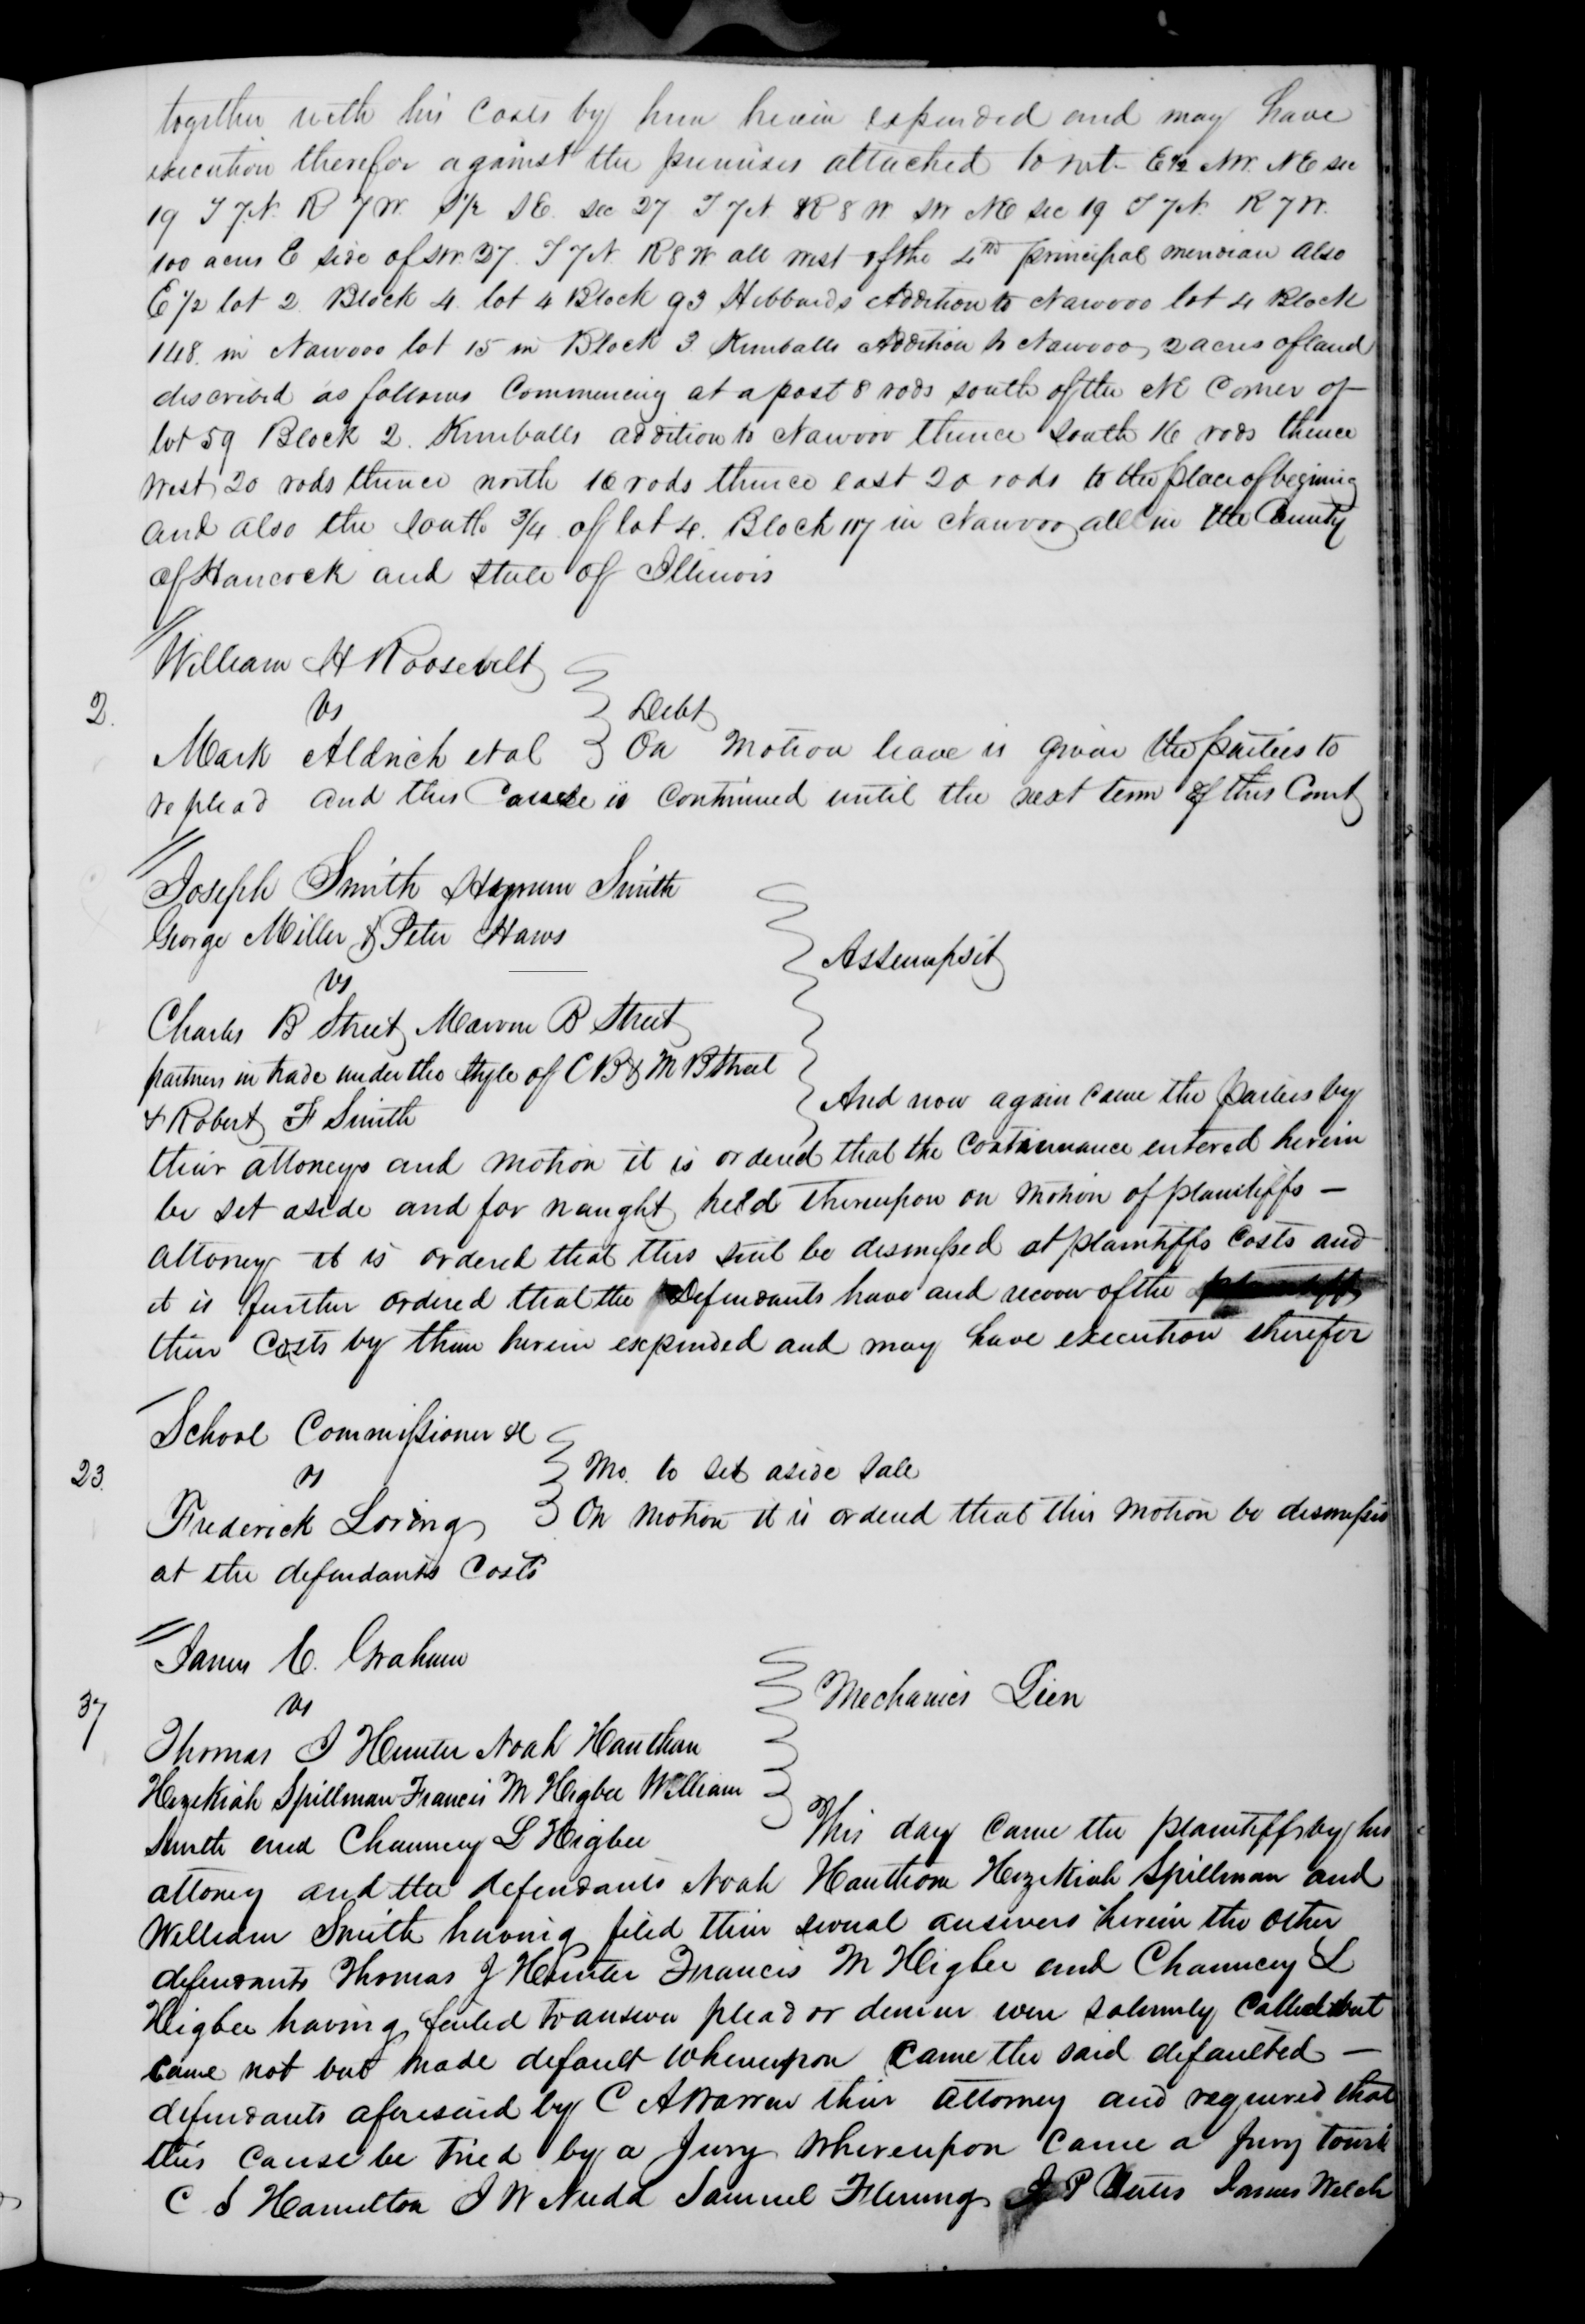 together with his Costs by him herein expended and may have
execution therefor against the premises attached to wit E½ NW. NE sec
19 T 7N. R 7W. S½ SE. sec 27 T 7N. R 8 W. SW NE sec 19 T 7N. R 7W.
100 acres E side of SW. 27. T 7N R8 W all west of the 4th principal meridian also
E ½ lot 2. Block 4. lot 4 Block 93 Hibbards Addition to Nauvoo lot 4 Block
148. in Nauvoo lot 15 in Block 3 Kimballs Addition to Nauvoo, 2 acres of land
discribed as follows Commencing at a post 8 rods south of the NE Corner of
lot 59 Block 2. Kimballs addition to Nauvoo thence South 16 rods thence
West 20 rods thence north 16 rods thence east 20 rods to the place of begining
and also the South ¾ of lot 4. Block 117 in Nauvoo all in the County
of Hancock and State of Illinois
William H Roosevelt
2. vs Debt
Mark Aldrich et al On Motion leave is given the parties to
replead and this Cause is Continued until the next term of this Court
Joseph Smith Hyrum Smith
George Miller & Peter Haws
vs Assumpsit
Charles B Street, Marvin B Street
partners in trade under the Style of C B & M B Street
& Robert F Smith And now again came the parties by
their attorneys and motion it is ordered that the Continuance entered herein
be set aside and for naught held Thereupon on Motion of plaintiffs —
attorney it is ordered that this suit be dismissed at plaintiffs Costs and
it is further ordered that the Defendants have and recover of the plaintiffs
their Costs by them herein expended and may have execution therefor
School Commissioner &c
23. vs Mo. to set aside Sale
Frederick Loring On Motion it is ordered that this Motion be dismissed
at the defendants Costs
James C. Graham
37 vs Mechanics Lien
Thomas J Hunter Noah Hauthan
Hezekiah Spillman Francis M Higbee William
Smith and Chauncey L Higbee This day Came the plaintiff by his
attorney and the defendants Noah Hauthorn Hezekiah Spillman and
William Smith having filed their several answers herein the other
defendants Thomas J Hunter Francis M Higbee and Chauncey L
Higbee having failed to answer plead or demur were solemnly Called but
Came not but made default Whereupon Came the said defaulted —
defendants aforesaid by C A Warren their Attorney and required that
this Cause be tried by a Jury Whereupon Came a Jury towit
C S Hamilton J W Nudd Samuel Fleming P James Welch